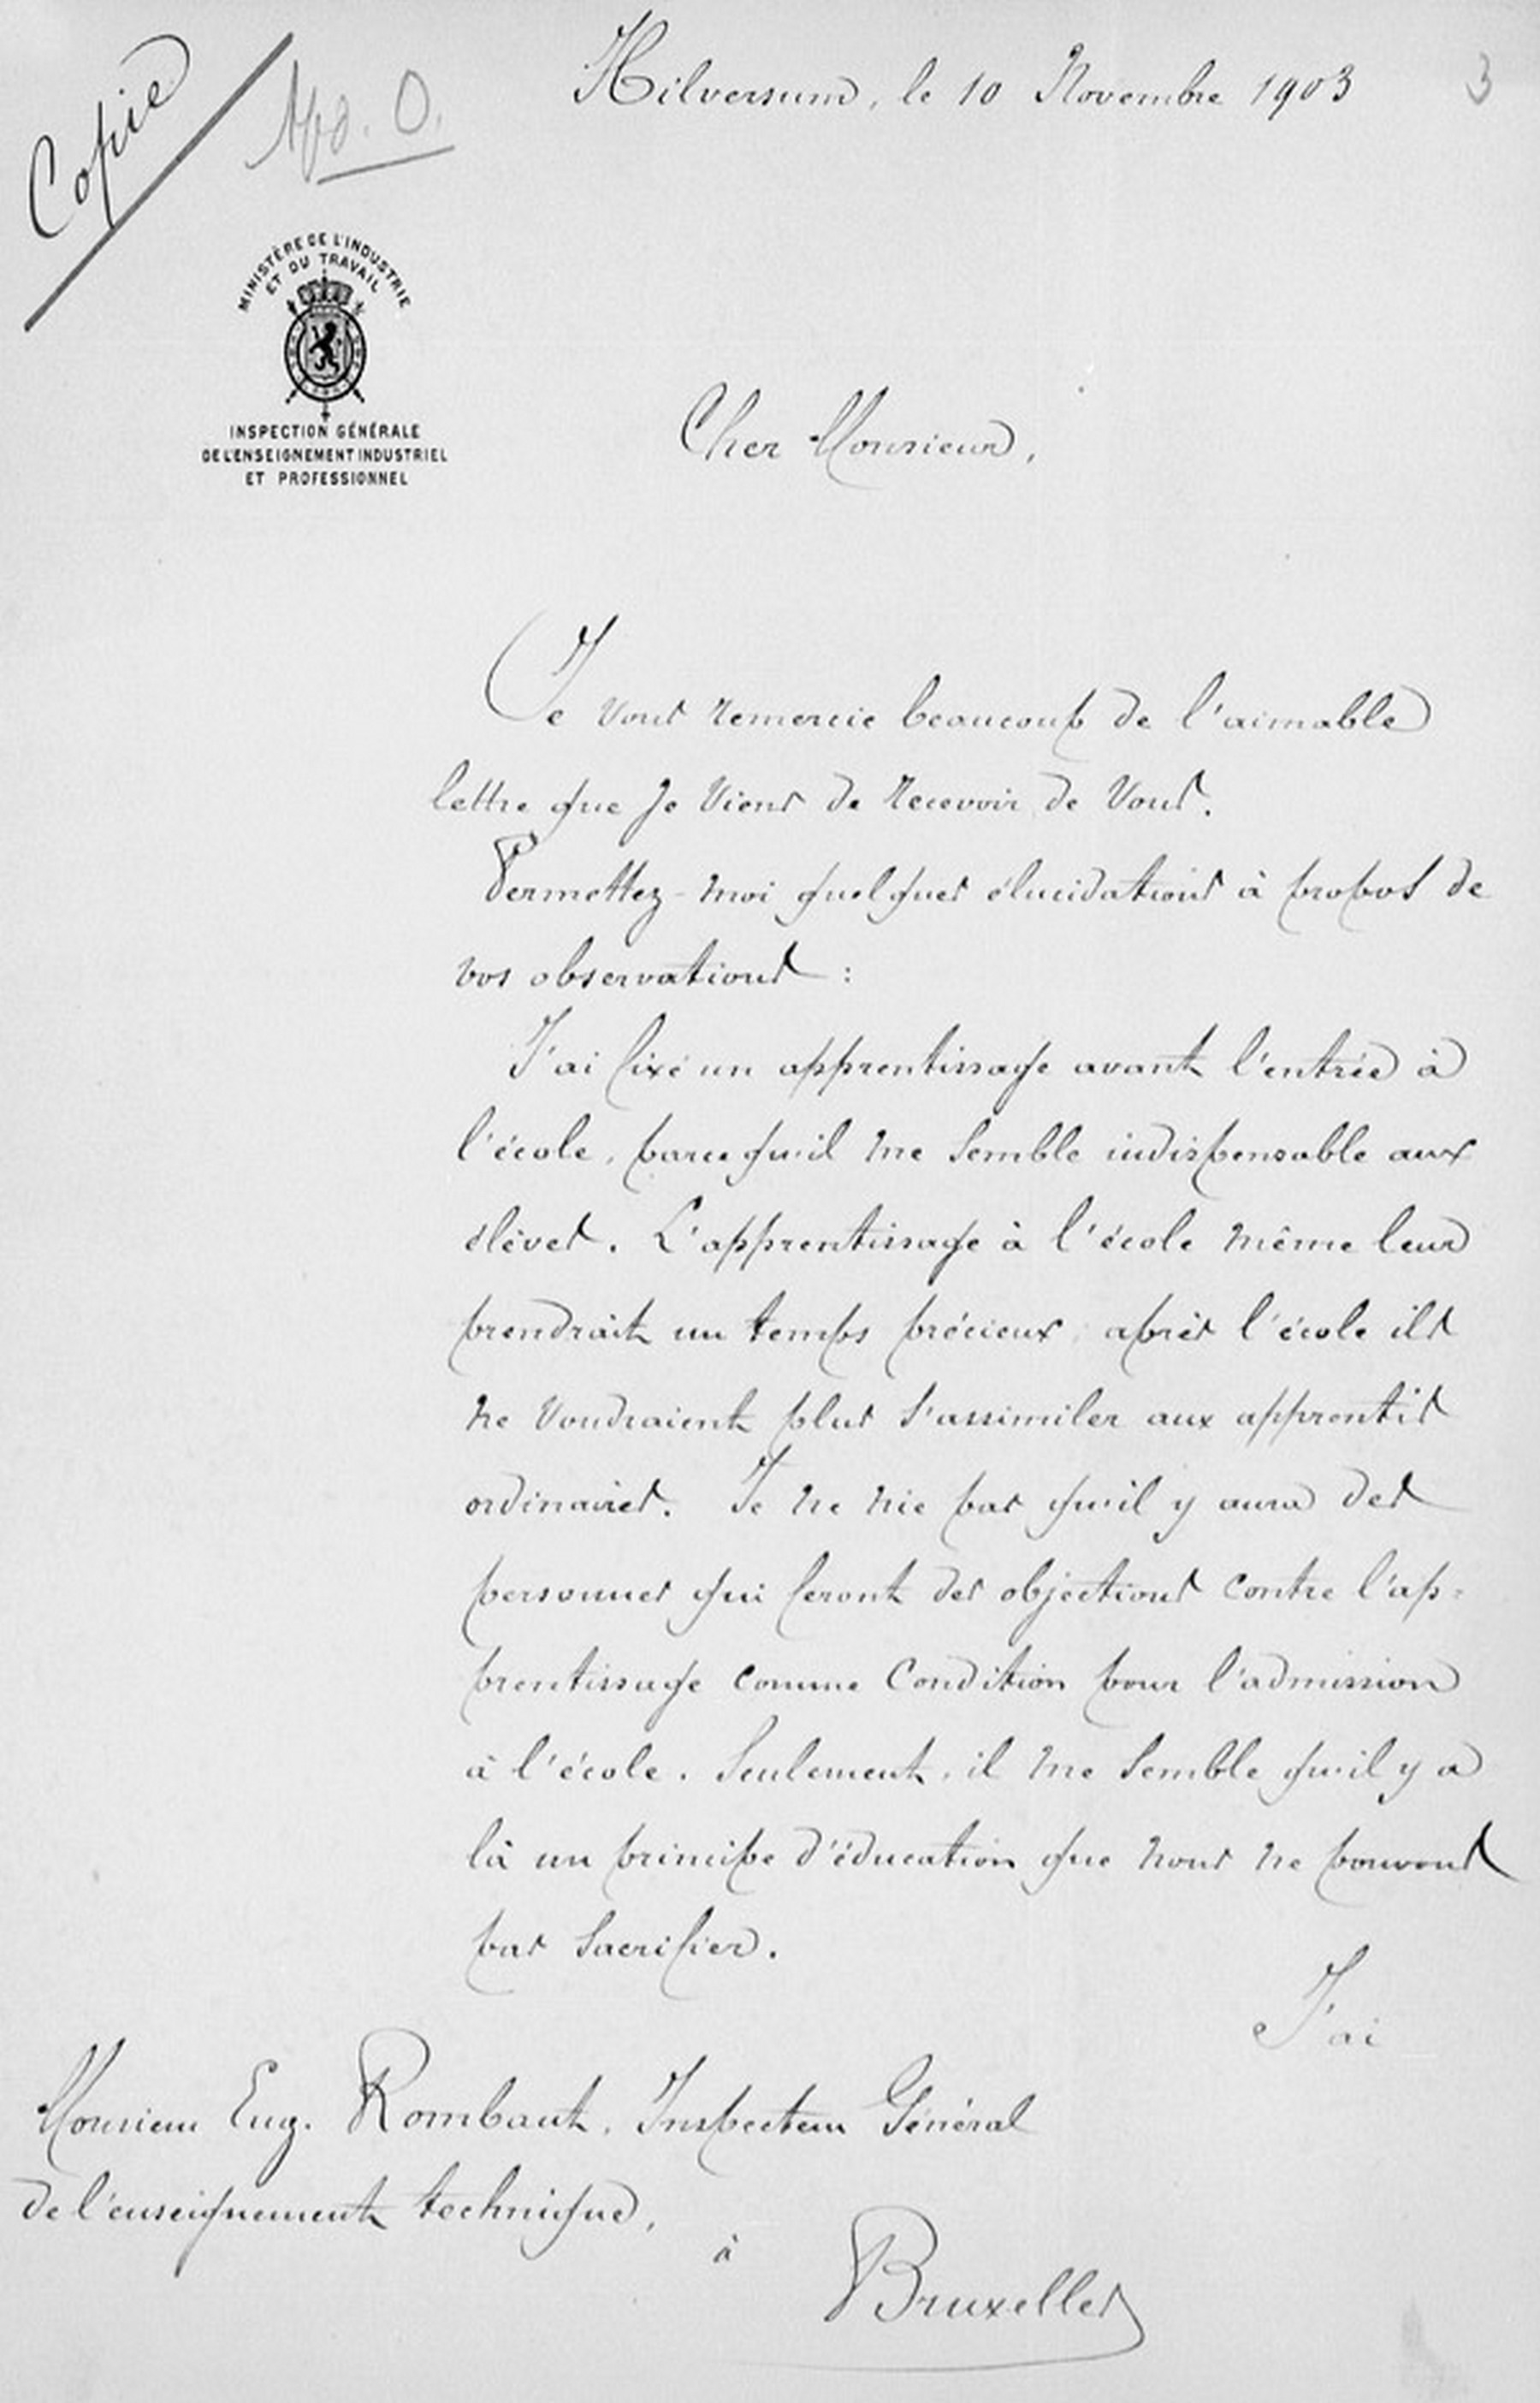 Copie
Hilversum, le 10 Novembre 1903
3
MINISTÈRE DE L'INDUSTRIE
ET DU TRAVAIL
INSPECTION GÉNÉRALE
DE L'ENSEIGNEMENT INDUSTRIEL
ET PROFESSIONNEL
Cher Monsieur,
Je vous remercie beaucoup de l'aimable
lettre que je viens de recevoir de Vous.
Permettez-moi quelques élucidations à propos de
vos observations :
J'ai fixé un apprentissage avant l'entrée à
l'école, parce qu'il me semble indispensable aux
élèves. L'apprentissage à l'école même leur
prendrait un temps précieux, après l'école ils
ne voudraient plus s'assimiler aux apprentis
ordinaires. Je ne nie pas qu'il y aura des
personnes qui feront des objections contre l'ap=
prentissage comme condition pour l'admission
à l'école. Seulement, il me semble qu'il y a
là un principe d'éducation que nous ne pouvons
pas sacrifier.
J'ai
Monsieur Eug. Rombaut, Inspecteur Général
de l'enseignement technique,
à
Bruxelles